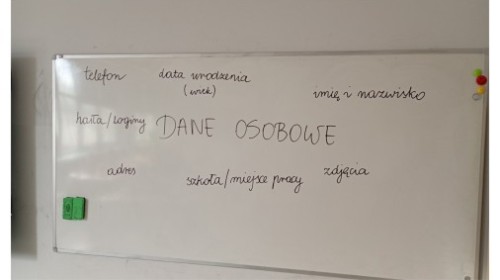 telefon
data urodzenia
(wiek)
imię i nazwisko
hasła/loginy
DANE OSOBOWE
adres
szkoła/miejsce pracy
zdjęcia